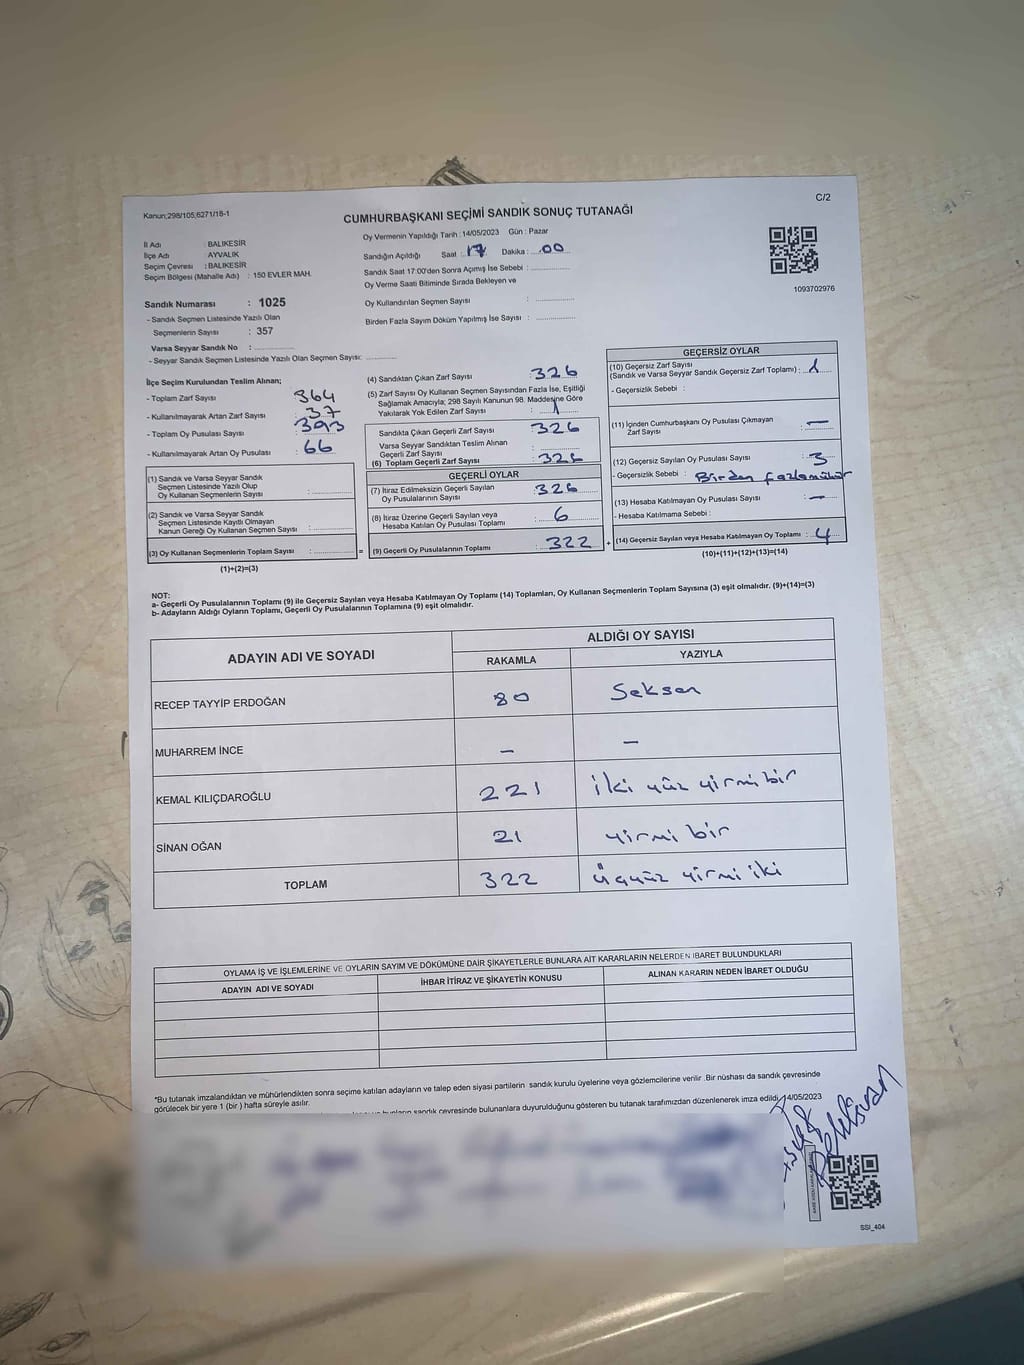 Kanun;298/105,6271/16-1
C/2
CUMHURBAŞKANI SEÇİMİ SANDIK SONUÇ TUTANAĞI
İl Adı : BALIKESİR
İlçe Adı AYVALIK
Seçim Çevresi : BALIKESİR
Seçim Bölgesi (Mahalle Adı) : 150 EVLER MAH.
Oy Vermenin Yapıldığı Tarih : 14/05/2023 Gün : Pazar
Sandığın Açıldığı Saat : 17 Dakika : 00
Sandık Saat 17:00'den Sonra Açımış İse Sebebi :
Oy Verme Saati Bitiminde Sırada Bekleyen ve
Oy Kullandırılan Seçmen Sayısı :
Birden Fazla Sayım Döküm Yapılmış İse Sayısı :
1093702976
Sandık Numarası : 1025
- Sandık Seçmen Listesinde Yazılı Olan
Seçmenlerin Sayısı : 357
Varsa Seyyar Sandık No :
- Seyyar Sandık Seçmen Listesinde Yazılı Olan Seçmen Sayısı:
İlçe Seçim Kurulundan Teslim Alınan;
- Toplam Zarf Sayısı : 364
- Kullanılmayarak Artan Zarf Sayısı : 37
- Toplam Oy Pusulası Sayısı : 393
- Kullanılmayarak Artan Oy Pusulası : 66
(1) Sandık ve Varsa Seyyar Sandık
Seçmen Listesinde Yazılı Olup
Oy Kullanan Seçmenlerin Sayısı :
(2) Sandık ve Varsa Seyyar Sandık
Seçmen Listesinde Kayıtlı Olmayan
Kanun Gereği Oy Kullanan Seçmen Sayısı :
(3) Oy Kullanan Seçmenlerin Toplam Sayısı : =
(1)+(2)=(3)
(4) Sandıktan Çıkan Zarf Sayısı : 326
(5) Zarf Sayısı Oy Kullanan Seçmen Sayısından Fazla İse, Eşitliği
Sağlamak Amacıyla; 298 Sayılı Kanunun 98. Maddesine Göre
Yakılarak Yok Edilen Zarf Sayısı :
Sandıkta Çıkan Geçerli Zarf Sayısı : 326
Varsa Seyyar Sandıktan Teslim Alınan
Geçerli Zarf Sayısı :
(6) Toplam Geçerli Zarf Sayısı : 326
GEÇERLİ OYLAR
(7) İtiraz Edilmeksizin Geçerli Sayılan
Oy Pusulalarının Sayısı : 326
(8) İtiraz Üzerine Geçerli Sayılan veya
Hesaba Katılan Oy Pusulası Toplamı : 6
(9) Geçerli Oy Pusulalarının Toplamı : 322 +
GEÇERSİZ OYLAR
(10) Geçersiz Zarf Sayısı
(Sandık ve Varsa Seyyar Sandık Geçersiz Zarf Toplamı) : 1
- Geçersizlik Sebebi :
(11) İçinden Cumhurbaşkanı Oy Pusulası Çıkmayan
Zarf Sayısı : —
(12) Geçersiz Sayılan Oy Pusulası Sayısı : 3
- Geçersizlik Sebebi : Birden fazla mühür
(13) Hesaba Katılmayan Oy Pusulası Sayısı : —
- Hesaba Katılmama Sebebi :
(14) Geçersiz Sayılan veya Hesaba Katılmayan Oy Toplamı : 4
(10)+(11)+(12)+(13)=(14)
NOT:
a- Geçerli Oy Pusulalarının Toplamı (9) ile Geçersiz Sayılan veya Hesaba Katılmayan Oy Toplamı (14) Toplamları, Oy Kullanan Seçmenlerin Toplam Sayısına (3) eşit olmalıdır. (9)+(14)=(3)
b- Adayların Aldığı Oyların Toplamı, Geçerli Oy Pusulalarının Toplamına (9) eşit olmalıdır.
ADAYIN ADI VE SOYADI ALDIĞI OY SAYISI
RAKAMLA YAZIYLA
RECEP TAYYİP ERDOĞAN 80 Seksen
MUHARREM İNCE — —
KEMAL KILIÇDAROĞLU 221 iki yüz yirmi bir
SİNAN OĞAN 21 yirmi bir
TOPLAM 322 Üçyüz yirmi iki
OYLAMA İŞ VE İŞLEMLERİNE VE OYLARIN SAYIM VE DÖKÜMÜNE DAİR ŞİKAYETLERLE BUNLARA AİT KARARLARIN NELERDEN İBARET BULUNDUKLARI
ADAYIN ADI VE SOYADI İHBAR İTİRAZ VE ŞİKAYETİN KONUSU ALINAN KARARIN NEDEN İBARET OLDUĞU
*Bu tutanak imzalandıktan ve mühürlendikten sonra seçime katılan adayların ve talep eden siyasi partilerin sandık kurulu üyelerine veya gözlemcilerine verilir .Bir nüshası da sandık çevresinde
görülecek bir yere 1 (bir ) hafta süreyle asılır.
sandık çevresinde bulunanlara duyurulduğunu gösteren bu tutanak tarafımızdan düzenlenerek imza edildi. 14/05/2023
SSI_404